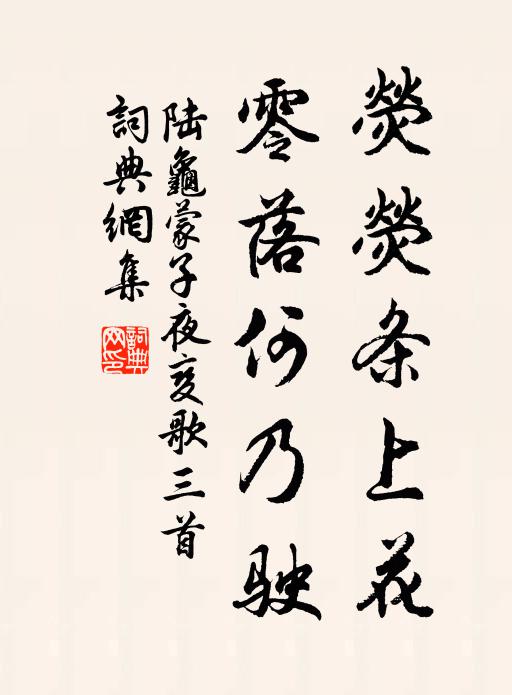 熒熒条上花
零落何乃駛
陆龜蒙子夜変歌三首
詞典網集
詞典网印